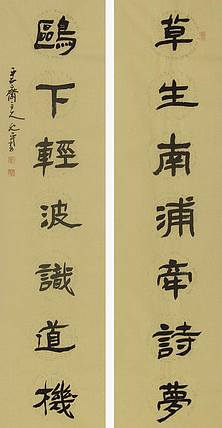 草生南浦牵詩夢
鷗下輕波識道機